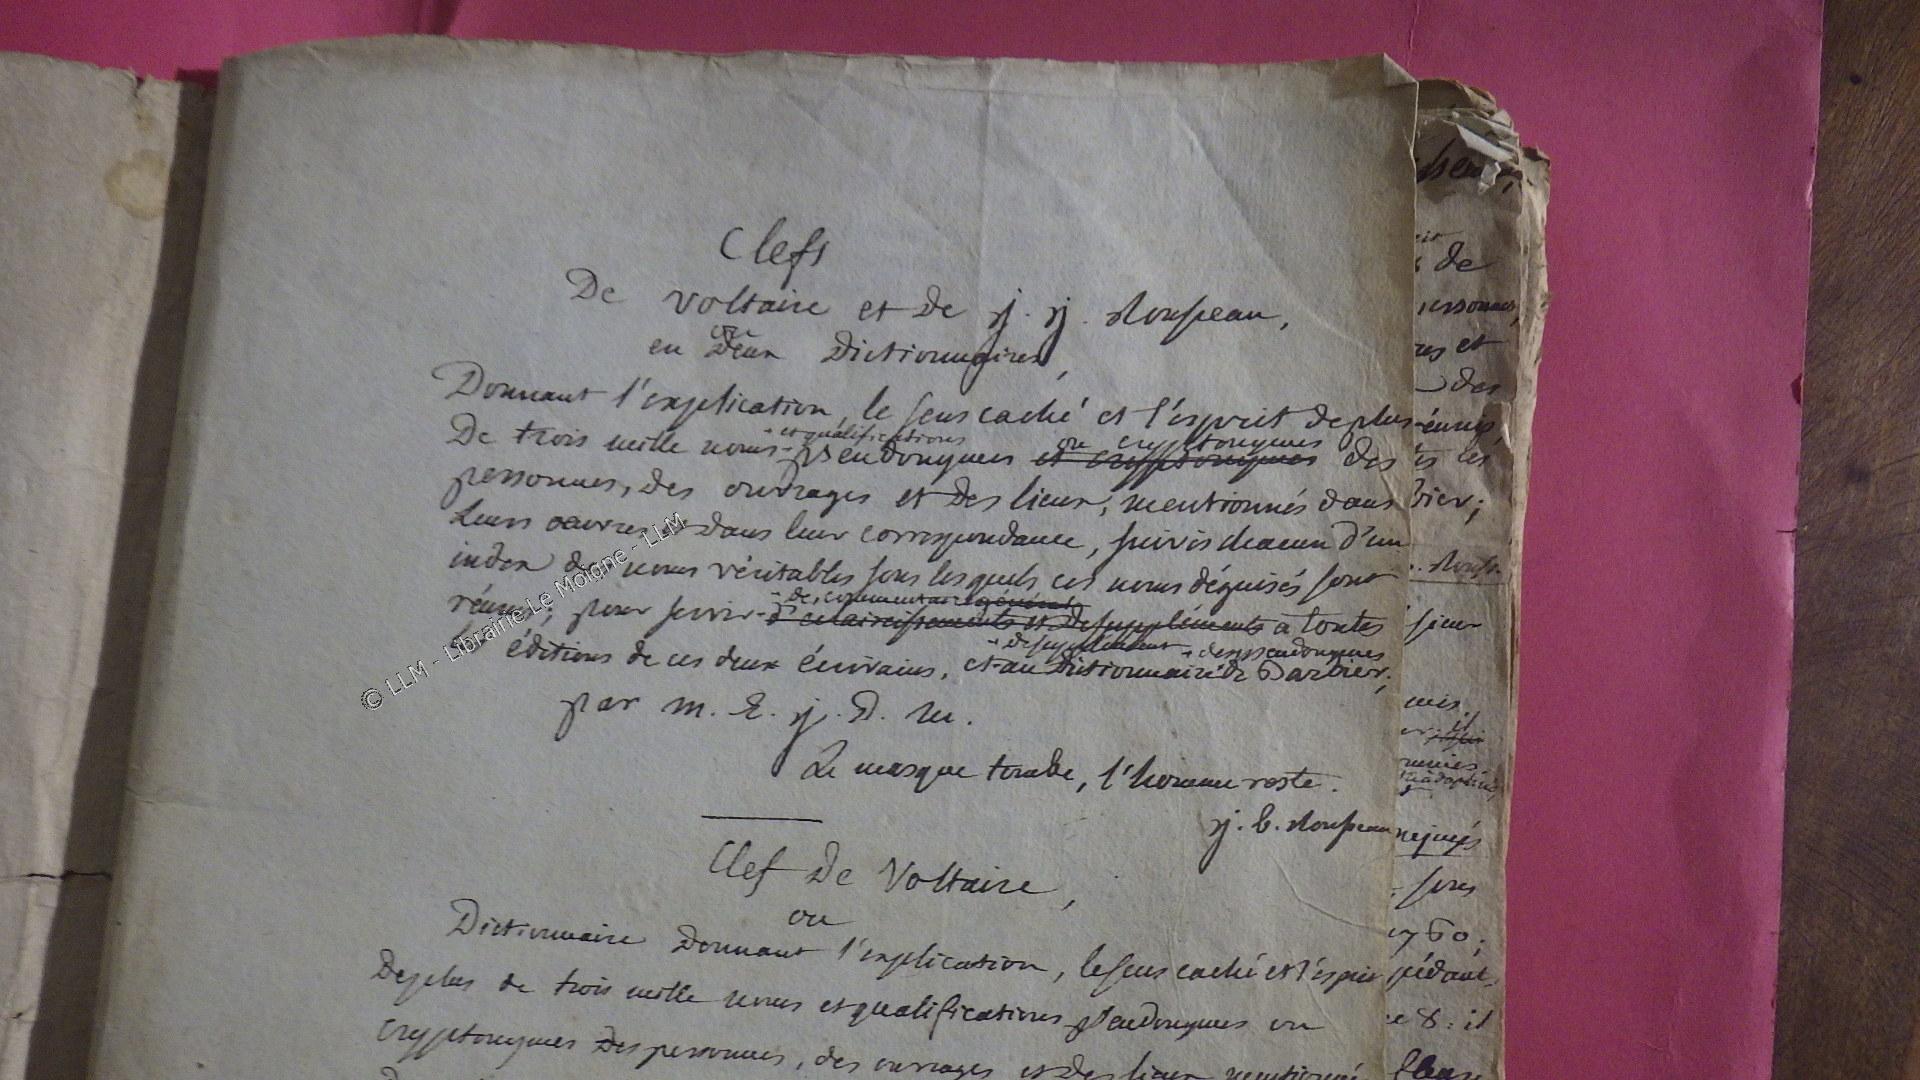 Clefs
De Voltaire et de j. j. Rousseau,
ou
en Deux Dictionnaires,
Donnant l'explication, le sens caché et l'esprit de plus
De trois mille noms et qualifications pseudonymes ou cryptonymes et cryptonymes des
personnes, des ouvrages et des lieux, mentionnés dans
leurs oeuvres et dans leur correspondance, suivis chacun d'un
index des noms véritables sous lesquels ces noms déguisés sont
réunis; pour servir de commentaire général d'éclaircissements et de suppléments à toutes
les éditions de ces deux écrivains, et au de supplément Dictionnaire des pseudonymes de Barbier;
par m. E. j. D. m.
Le masque tombe, l'homme reste.
j. b. Rousseau
Clef De Voltaire,
ou
Dictionnaire Donnant l'explication, le sens caché et l'esprit
De plus de trois mille noms et qualifications pseudonymes ou
cryptonymes Des personnes, des ouvrages et des lieux
de
personnes,
res et
des
1760;
pédant,
© LLM - Librairie Le Moigne - LLM